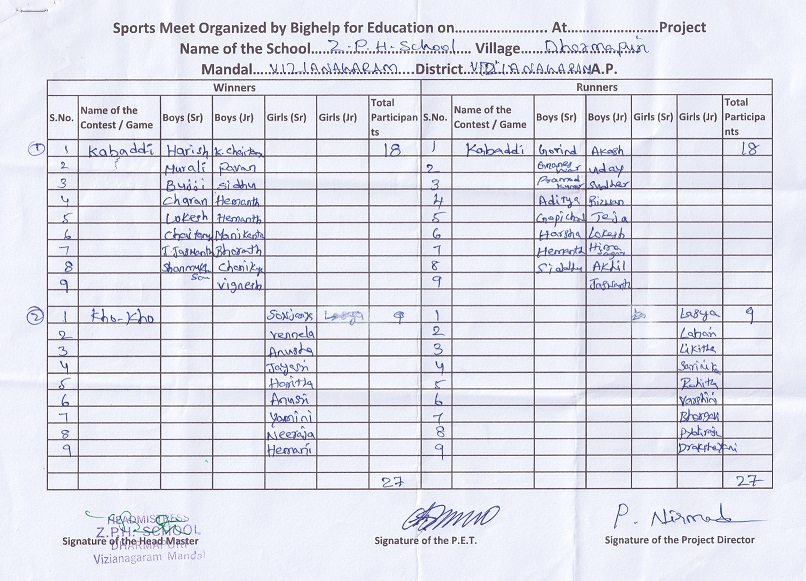 Sports Meet Organized by Bighelp for Education on........................ At........................Project
Name of the School....Z.P.H.School.... Village....Dharmapuri
Mandal....VIZIANAGARAM....District.VIZIANAGARAM A.P.
Winners Runners
S.No. Name of the Contest / Game Boys (Sr) Boys (Jr) Girls (Sr) Girls (Jr) Total Participants S.No. Name of the Contest / Game Boys (Sr) Boys (Jr) Girls (Sr) Girls (Jr) Total Participants
① 1 Kabaddi Harish K.Chaitany 18 1 Kabaddi Govind Akash 18
2 Murali Pavan 2 Gnaneswar Uday
3 Bujji Siddhu 3 Pramod Kumar Sudher
4 Charan Hemanth 4 Aditya Rizwan
5 Lokesh Hemanth 5 Gopichad Teja
6 Chaitany Manikanta 6 Harsha Lokesh
7 T Jaswanth Bharath 7 Hemanth Hima Sagar
8 Shanmukh Sai Chanikya 8 Siddhu Akhil
9 Vignesh 9 Jaswanth
② 1 Kho-Kho 9 1 Lasya 9
2 Vennela 2
3 Anusha 3 Likitha
4 Jayasri 4
5 Haritha 5
6 Anusri 6 Varshini
7 Yamini 7
8 Neeraja 8
9 Hemani 9
27 27
HEADMISTRESS
Z.P.H. SCHOOL
Signature of the Head Master Signature of the P.E.T. Signature of the Project Director
DHARMAPURI
Vizianagaram Mandal
P. Nirmala